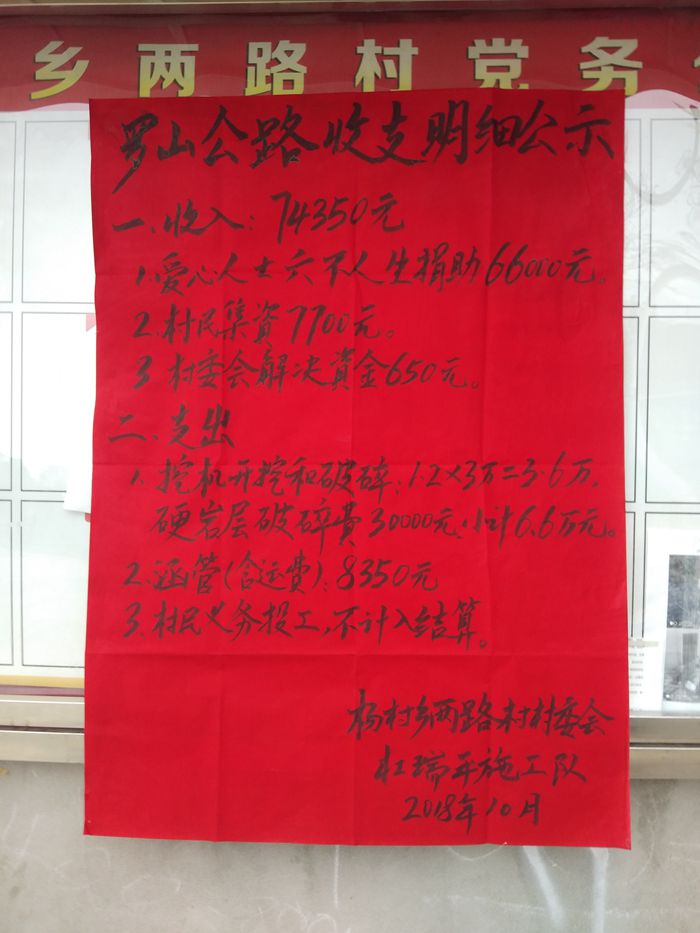 乡两路村党务
罗山公路收支明细公示
一、收入：74350元
1.爱心人士六不人生捐助66000元。
2.村民集资7700元。
3 村委会解决资金650元。
二、支出
1、挖机开挖和破碎：1.2×3万=3.6万，
硬岩层破碎费30000元，小计6.6万元。
2.涵管(含运费)：8350元
3、村民义务投工，不计入结算。
杨村乡两路村村委会
瑞开施工队
2018年10月